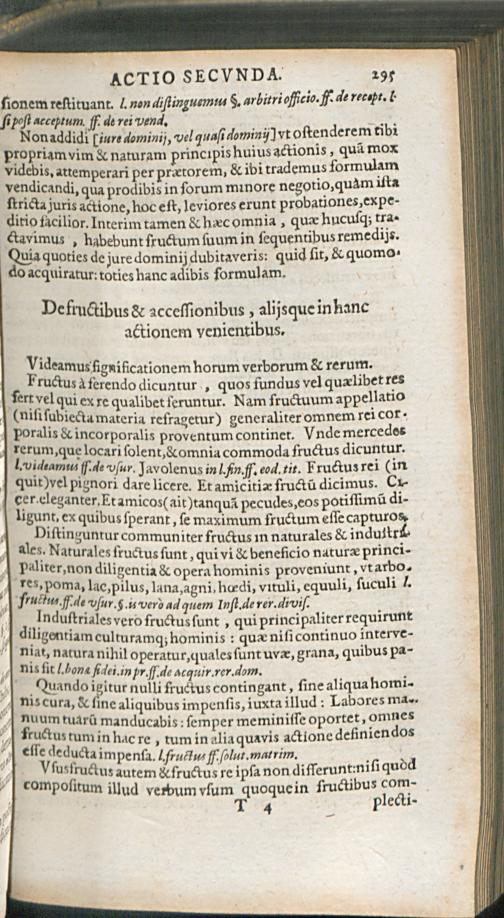 ACTIO SECVNDA. 295
ſionem reſtituant. l. non diſtinguemus §. arbitri officio. ff. de recept. l.
ſi poſt acceptum. ff. de rei vend.
Non addidi [iure dominij, vel quaſi dominij] vt oſtenderem tibi
propriam vim & naturam principis huius actionis, quā mox
videbis, attemperari per prætorem, & ibi trademus formulam
vendicandi, qua prodibis in forum minore negotio, quàm iſta
ſtricta juris actione, hoc eſt, leviores erunt probationes, expe-
ditio facilior. Interim tamen & hæc omnia, quæ hucuſq; tra-
ctavimus, habebunt fructum ſuum in ſequentibus remedijs.
Quia quoties de jure dominij dubitaveris: quid ſit, & quomo-
do acquiratur: toties hanc adibis formulam.
De fructibus & acceſſionibus, alijsque in hanc
actionem venientibus.
Videamus ſignificationem horum verborum & rerum.
Fructus à ferendo dicuntur, quos fundus vel quælibet res
fert vel qui ex re qualibet feruntur. Nam fructuum appellatio
(niſi ſubiecta materia refragetur) generaliter omnem rei cor-
poralis & incorporalis proventum continet. Vnde mercedes
rerum, que locari ſolent, & omnia commoda fructus dicuntur.
l. videamus ff. de vſur. Javolenus in l. fin. ff. eod. tit. Fructus rei (in
quit) vel pignori dare licere. Et amicitiæ fructū dicimus. Ci-
cer. eleganter. Et amicos (ait) tanquā pecudes, eos potiſſimū di-
ligunt, ex quibus ſperant, ſe maximum fructum eſſe capturos.
Diſtinguntur communiter fructus in naturales & induſtri-
ales. Naturales fructus ſunt, qui vi & beneficio naturæ princi-
paliter, non diligentia & opera hominis proveniunt, vt arbo-
res, poma, lac, pilus, lana, agni, hœdi, vituli, equuli, ſuculi l.
fructus. ff. de vſur. §. is verò ad quem Inſt. de rer. diviſ.
Induſtriales vero fructus ſunt, qui principaliter requirunt
diligentiam culturamq; hominis: quæ niſi continuo interve-
niat, natura nihil operatur, quales ſunt uvæ, grana, quibus pa-
nis fit l. bonæ fidei. in pr. ff. de acquir. rer. dom.
Quando igitur nulli fructus contingant, ſine aliqua homi-
nis cura, & ſine aliquibus impenſis, iuxta illud: Labores ma-
nuum tuarū manducabis: ſemper meminiſſe oportet, omnes
fructus tum in hac re, tum in alia quavis actione definiendos
eſſe deducta impenſa. l. fructus ff. ſolut. matrim.
Vſusfructus autem & fructus re ipſa non differunt: niſi quòd
compoſitum illud verbum vſum quoque in fructibus com-
T 4 plecti-